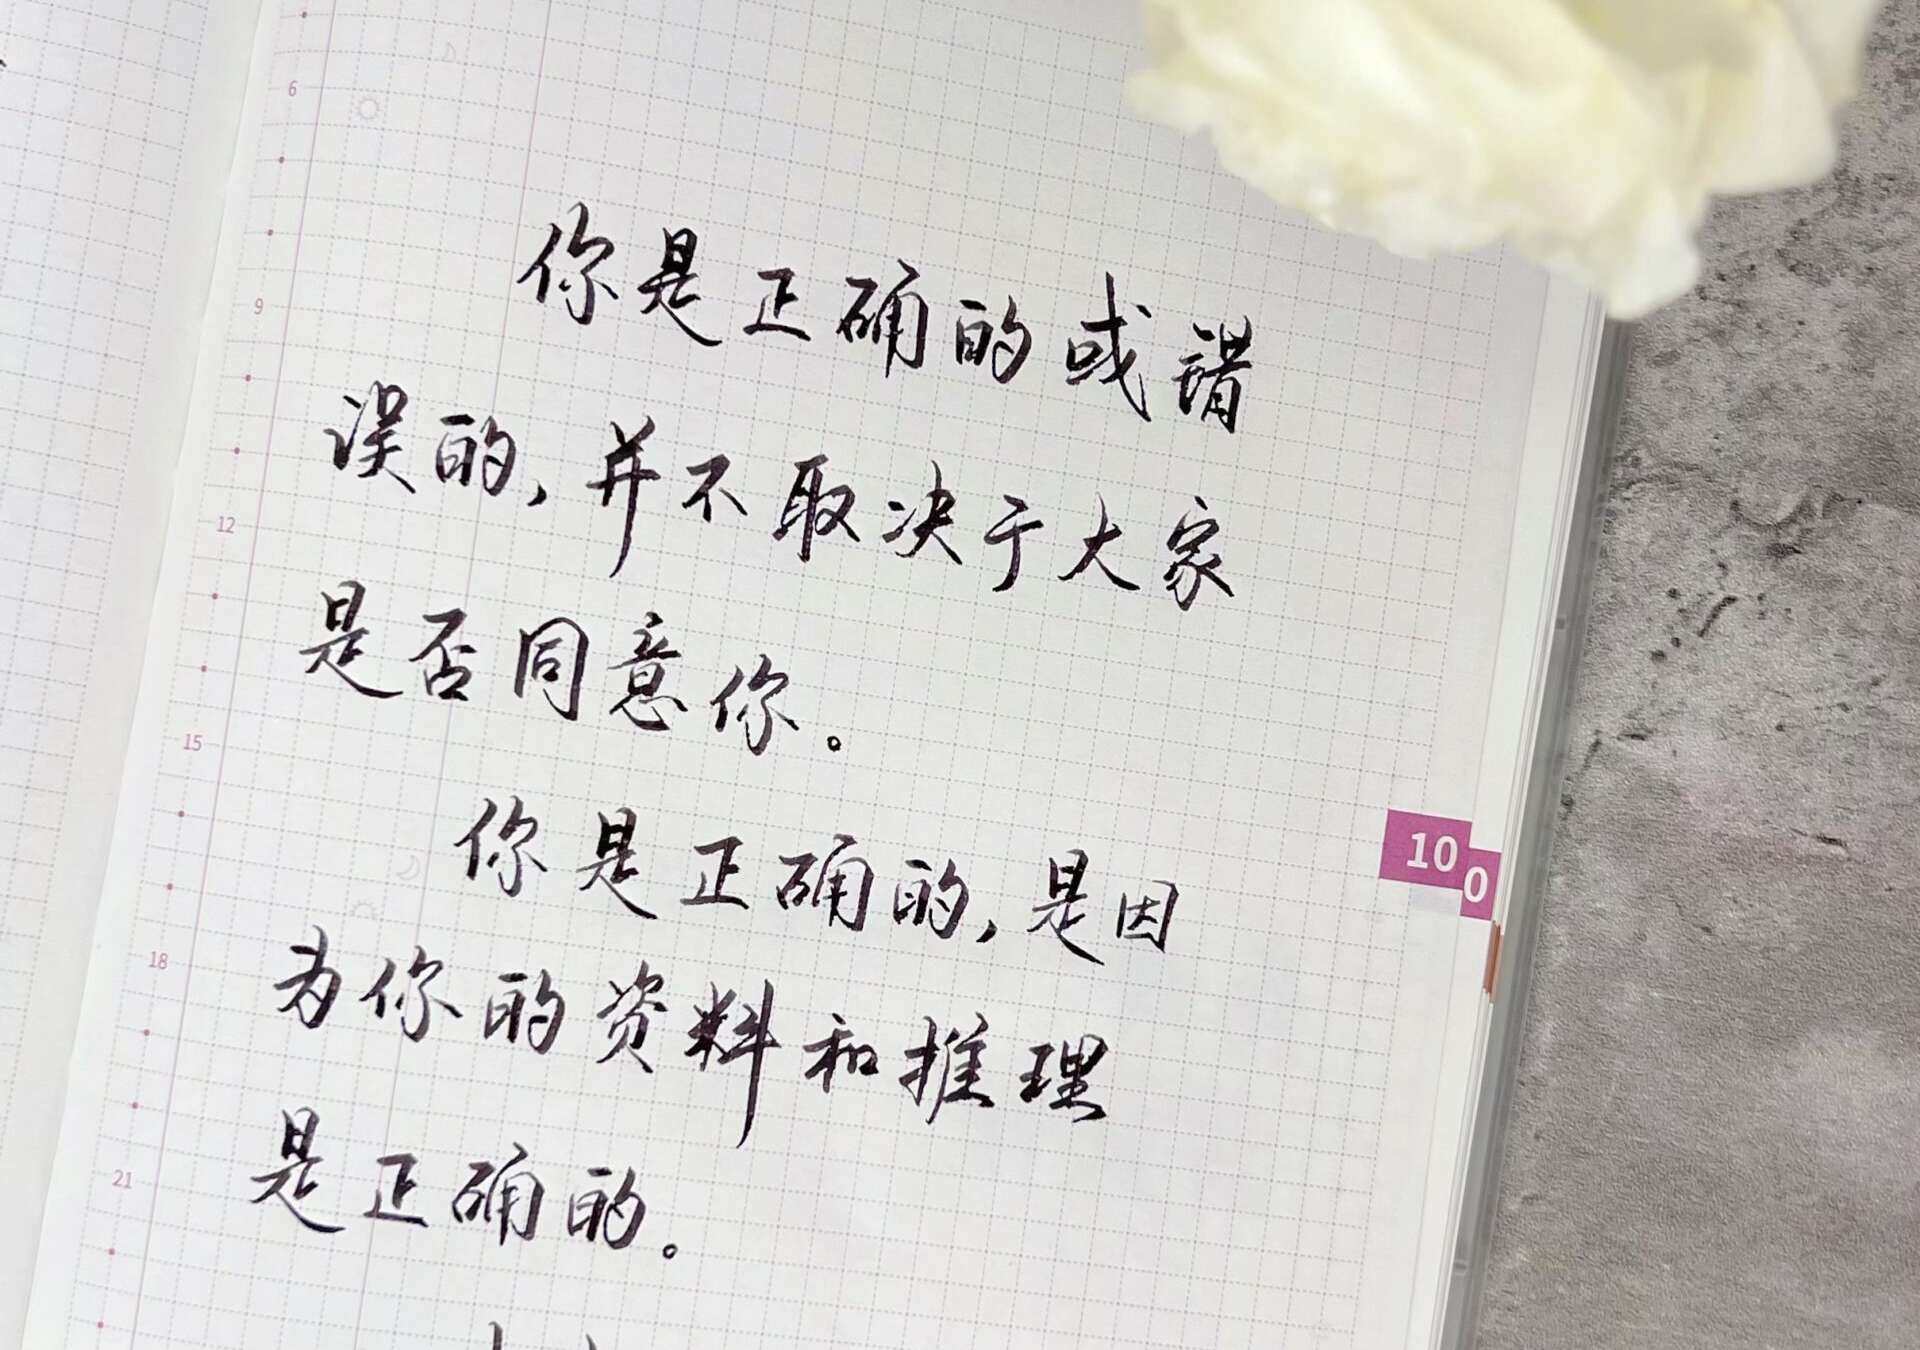 6
9
你是正确的或错
误的，并不取决于大家
12
是否同意你。
15
你是正确的，是因
10
0
18
为你的资料和推理
21
是正确的。